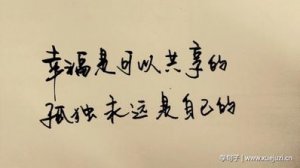 幸福是可以共享的
孤独永远是自己的
学句子 | www.xuejuzi.cn